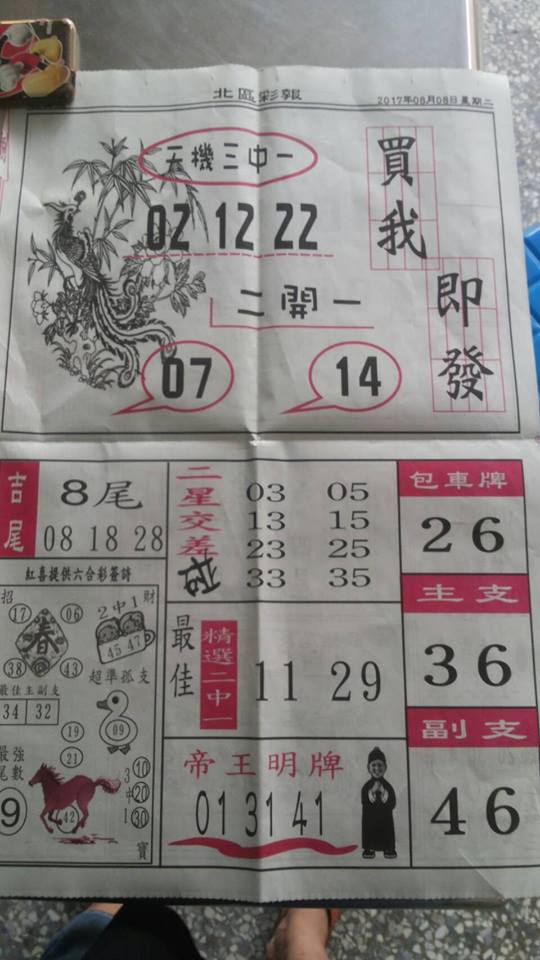 北區彩報
2017年08月08日星期二
天機三中一
02 12 22
二開一
07
14
買我
即發
吉尾
8尾
08 18 28
二星交差
03 05
13 15
23 25
33 35
包車牌
26
主支
36
副支
46
最佳
精選二中一
11 29
帝王明牌
01 31 41
紅喜提供六合彩簽詩
招
財
17
06
春
38
43
2中1
45 47
超準孤支
09
最佳主副支
34 32
19
21
最強尾數
9
42
3中1
10
20
30
寶